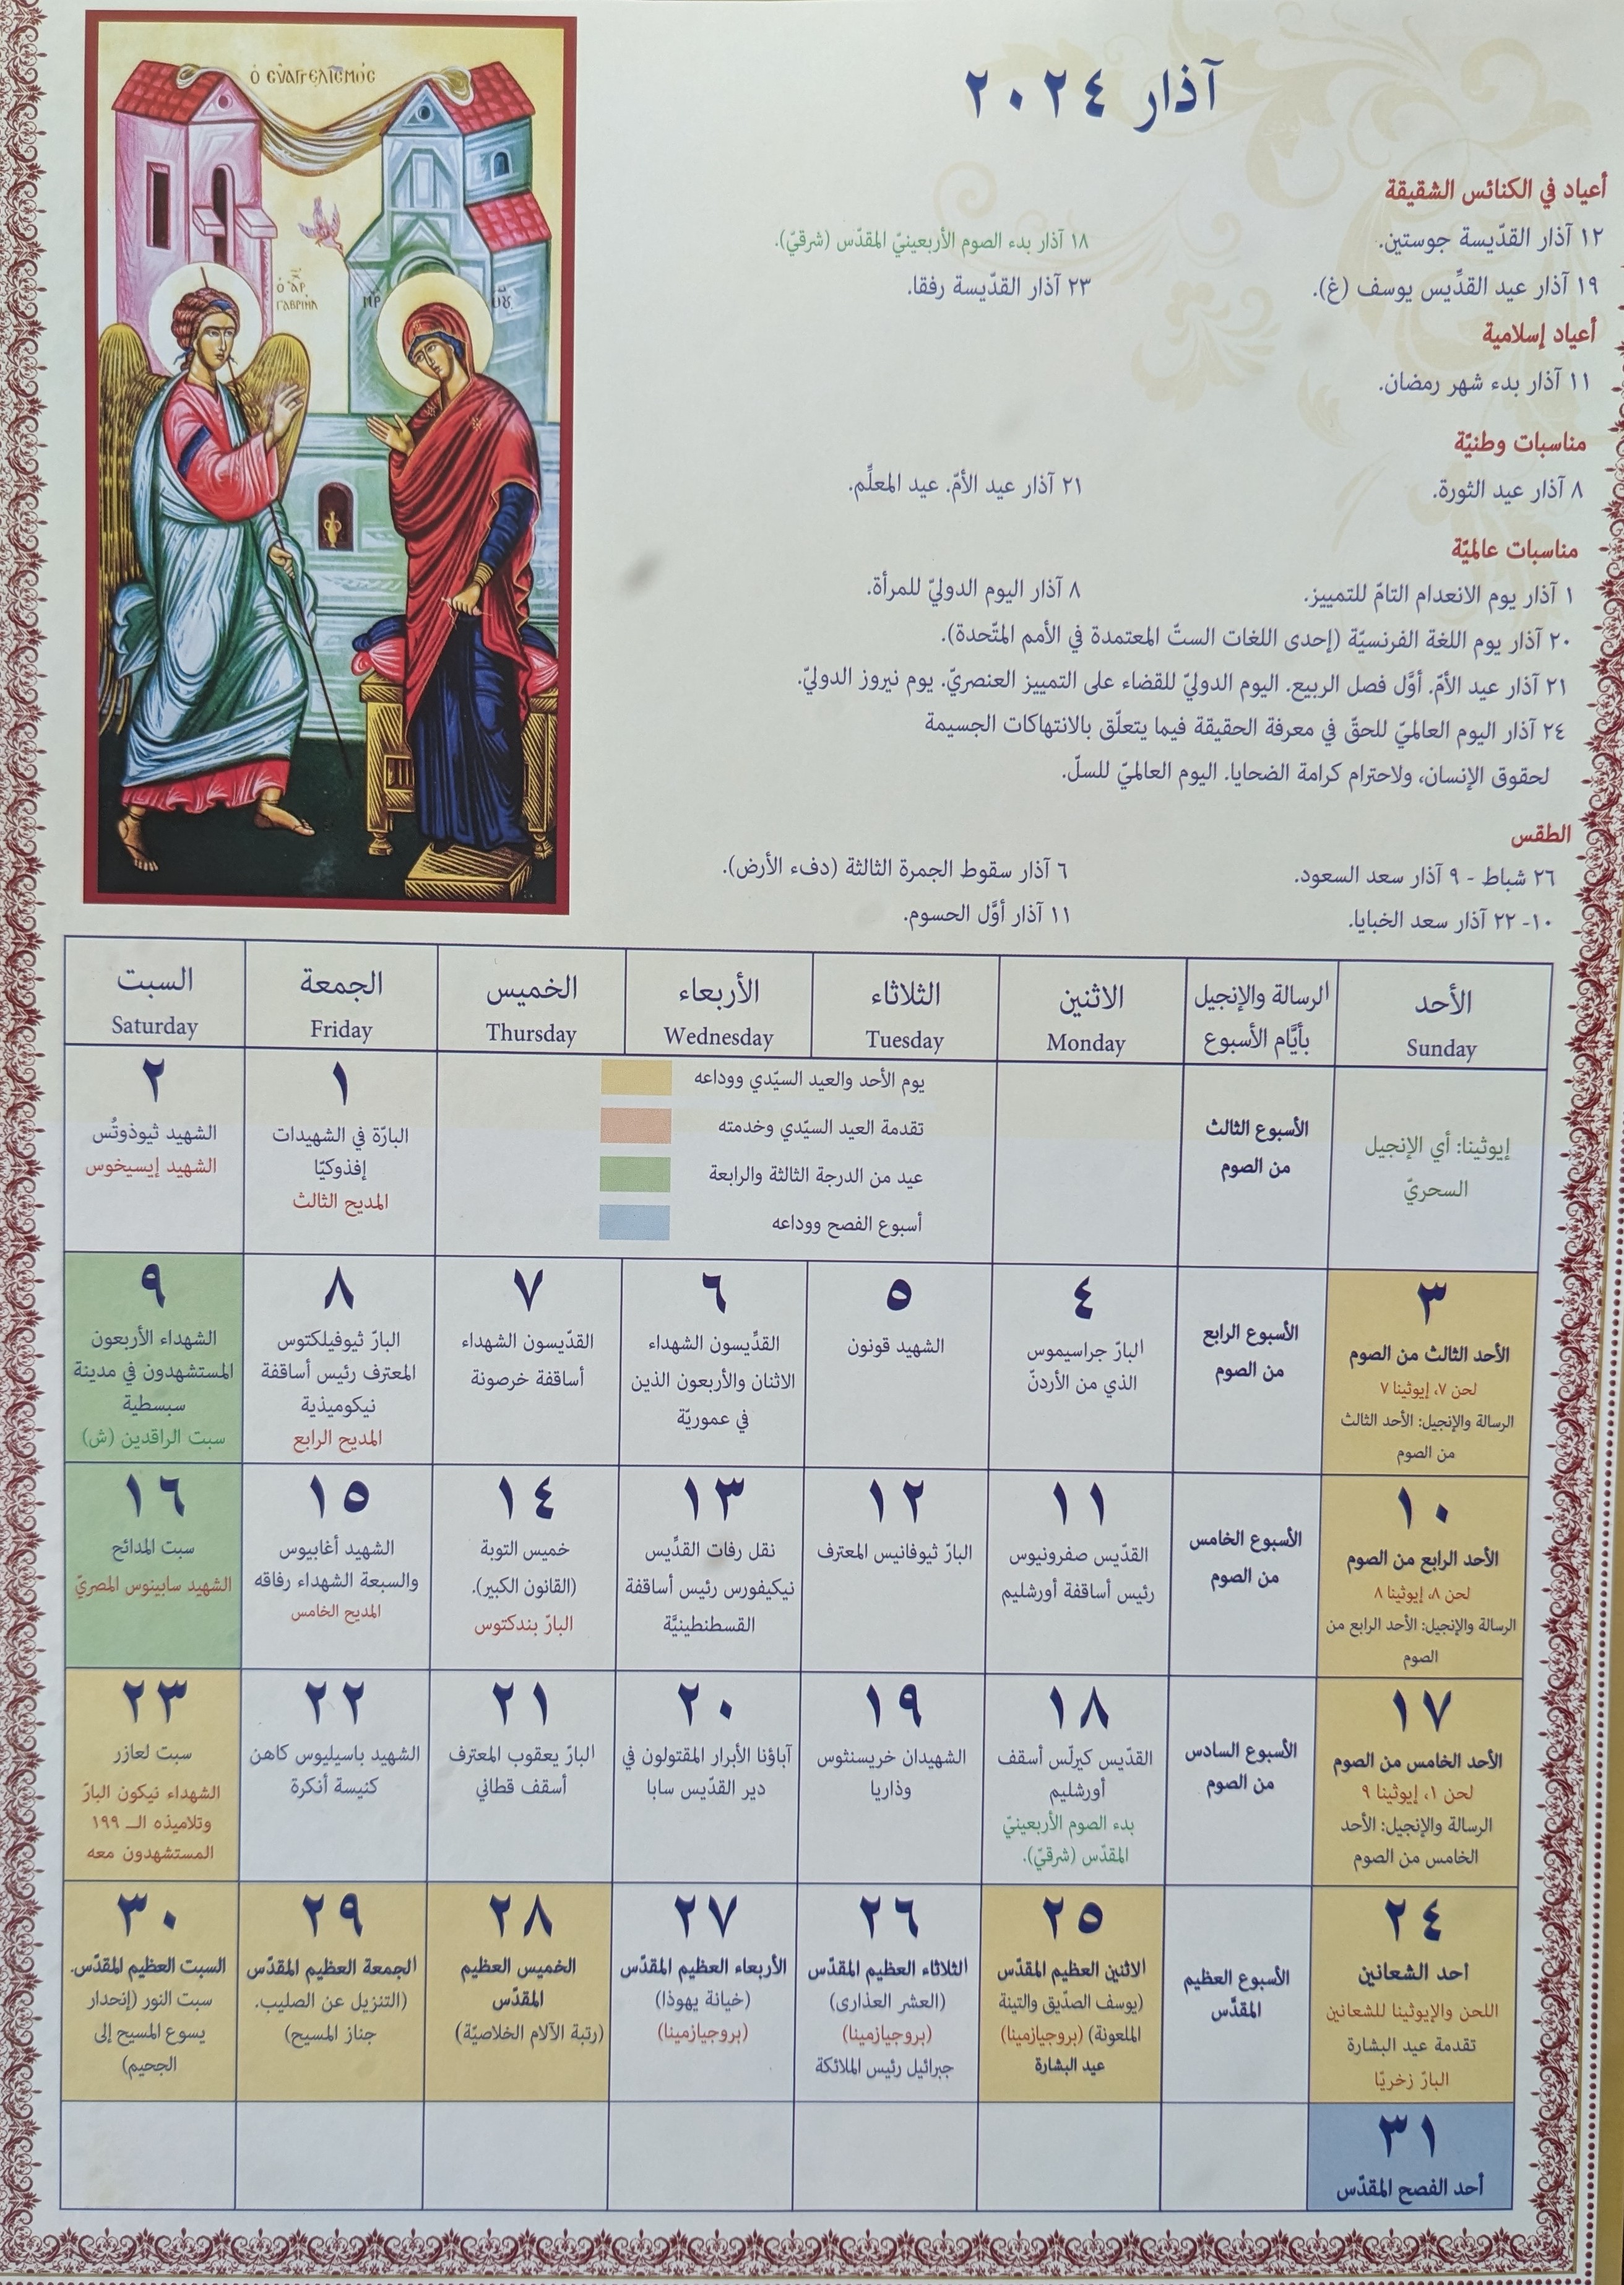 Ο ЄΥΑΓΓΕΛΙСΜΟС
آذار ٢٠٢٤
أعياد في الكنائس الشقيقة
١٢ آذار القدّيسة جوستين.
١٨ آذار بدء الصوم الأربعينيّ المقدّس (شرقيّ).
١٩ آذار عيد القدِّيس يوسف (غ).
٢٣ آذار القدّيسة رفقا.
أعياد إسلامية
١١ آذار بدء شهر رمضان.
مناسبات وطنيّة
٨ آذار عيد الثورة.
٢١ آذار عيد الأمّ. عيد المعلِّم.
مناسبات عالميّة
١ آذار يوم الانعدام التامّ للتمييز.
٨ آذار اليوم الدوليّ للمرأة.
٢٠ آذار يوم اللغة الفرنسيّة (إحدى اللغات الستّ المعتمدة في الأمم المتّحدة).
٢١ آذار عيد الأمّ. أوَّل فصل الربيع. اليوم الدوليّ للقضاء على التمييز العنصريّ. يوم نيروز الدوليّ.
٢٤ آذار اليوم العالميّ للحقّ في معرفة الحقيقة فيما يتعلّق بالانتهاكات الجسيمة
لحقوق الإنسان، ولاحترام كرامة الضحايا. اليوم العالميّ للسلّ.
الطقس
٢٦ شباط - ٩ آذار سعد السعود.
٦ آذار سقوط الجمرة الثالثة (دفء الأرض).
١٠- ٢٢ آذار سعد الخبايا.
١١ آذار أوَّل الحسوم.
الأحد
Sunday
الرسالة والإنجيل
بأيَّام الأسبوع
الاثنين
Monday
الثلاثاء
Tuesday
الأربعاء
Wednesday
الخميس
Thursday
الجمعة
Friday
السبت
Saturday
إيوثينا: أي الإنجيل
السحريّ
الأسبوع الثالث
من الصوم
يوم الأحد والعيد السيّدي ووداعه
تقدمة العيد السيّدي وخدمته
عيد من الدرجة الثالثة والرابعة
أسبوع الفصح ووداعه
١
البارّة في الشهيدات
إفذوكيّا
المديح الثالث
٢
الشهيد ثيوذوتُس
الشهيد إيسيخوس
٣
الأحد الثالث من الصوم
لحن ٧، إيوثينا ٧
الرسالة والإنجيل: الأحد الثالث
من الصوم
الأسبوع الرابع
من الصوم
٤
البارّ جراسيموس
الذي من الأردنّ
٥
الشهيد قونون
٦
القدِّيسون الشهداء
الاثنان والأربعون الذين
في عموريّة
٧
القدّيسون الشهداء
أساقفة خرصونة
٨
البارّ ثيوفيلكتوس
المعترف رئيس أساقفة
نيكوميذية
المديح الرابع
٩
الشهداء الأربعون
المستشهدون في مدينة
سبسطية
سبت الراقدين (ش)
١٠
الأحد الرابع من الصوم
لحن ٨، إيوثينا ٨
الرسالة والإنجيل: الأحد الرابع من
الصوم
الأسبوع الخامس
من الصوم
١١
القدّيس صفرونيوس
رئيس أساقفة أورشليم
١٢
البارّ ثيوفانيس المعترف
١٣
نقل رفات القدِّيس
نيكيفورس رئيس أساقفة
القسطنطينيَّة
١٤
خميس التوبة
(القانون الكبير).
البارّ بندكتوس
١٥
الشهيد أغابيوس
والسبعة الشهداء رفاقه
المديح الخامس
١٦
سبت المدائح
الشهيد سابينوس المصريّ
١٧
الأحد الخامس من الصوم
لحن ١، إيوثينا ٩
الرسالة والإنجيل: الأحد
الخامس من الصوم
الأسبوع السادس
من الصوم
١٨
القدّيس كيرلّس أسقف
أورشليم
بدء الصوم الأربعينيّ
المقدّس (شرقيّ).
١٩
الشهيدان خريسنثوس
وذاريا
٢٠
آباؤنا الأبرار المقتولون في
دير القدّيس سابا
٢١
البارّ يعقوب المعترف
أسقف قطاني
٢٢
الشهيد باسيليوس كاهن
كنيسة أنكرة
٢٣
سبت لعازر
الشهداء نيكون البارّ
وتلاميذه الـــ ١٩٩
المستشهدون معه
٢٤
احد الشعانين
اللحن والإيوثينا للشعانين
تقدمة عيد البشارة
البارّ زخريّا
الأسبوع العظيم
المقدَّس
٢٥
الاثنين العظيم المقدّس
(يوسف الصدّيق والتينة
الملعونة) (بروجيازمينا)
عيد البشارة
٢٦
الثلاثاء العظيم المقدّس
(العشر العذارى)
(بروجيازمينا)
جبرائيل رئيس الملائكة
٢٧
الأربعاء العظيم المقدّس
(خيانة يهوذا)
(بروجيازمينا)
٢٨
الخميس العظيم
المقدّس
(رتبة الآلام الخلاصيّة)
٢٩
الجمعة العظيم المقدّس
(التنزيل عن الصليب.
جناز المسيح)
٣٠
السبت العظيم المقدّس.
سبت النور (إنحدار
يسوع المسيح إلى
الجحيم)
٣١
أحد الفصح المقدّس